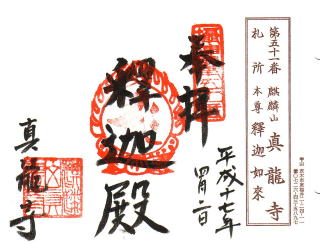 第五十一番 麒麟山 真龍寺
札所 本尊 釋迦如來
奉拜
平成十七年
四月二日
釋迦殿
真龍寺